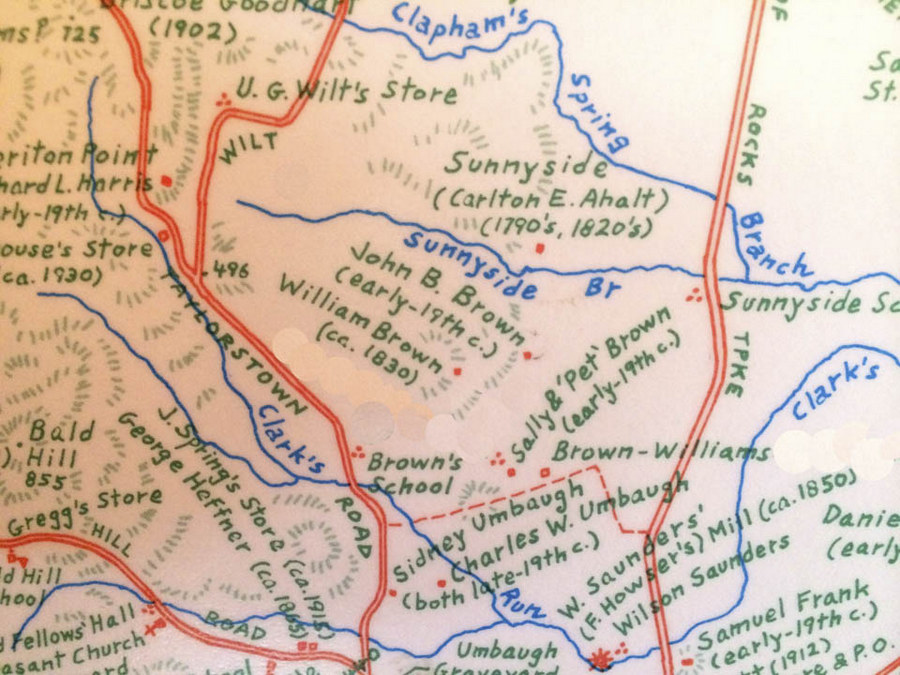 Briscoe Goodhart
(1902)
125
Clapham's
Spring
Branch
U. G. Wilt's Store
WILT
ROCKS
TPKE
Sunnyside
(Carlton E. Ahalt)
(1790's, 1820's)
Point
L. Harris
19th c.)
Store
(ca. 1930)
.496
TAYLORSTOWN
ROAD
Sunnyside
Br
John B. Brown
(early-19th c.)
William Brown
(ca. 1830)
Sunnyside
Sally & 'Pet' Brown
(early-19th c.)
Clark's
Brown-Williams
Bald
Hill
855
J. Spring's Store
(ca. 1915)
George Heffner
Clark's
Run
Brown's
School
Gregg's Store
HILL
ROAD
Sidney Umbaugh
Charles W. Umbaugh
(both late-19th c.)
W. Saunders'
(F. Howser's) Mill (ca. 1850)
Wilson Saunders
(early
Hill
Fellows Hall
Church
Umbaugh
Graveyard
Samuel Frank
(early-19th c.)
(1912)
& P.O.